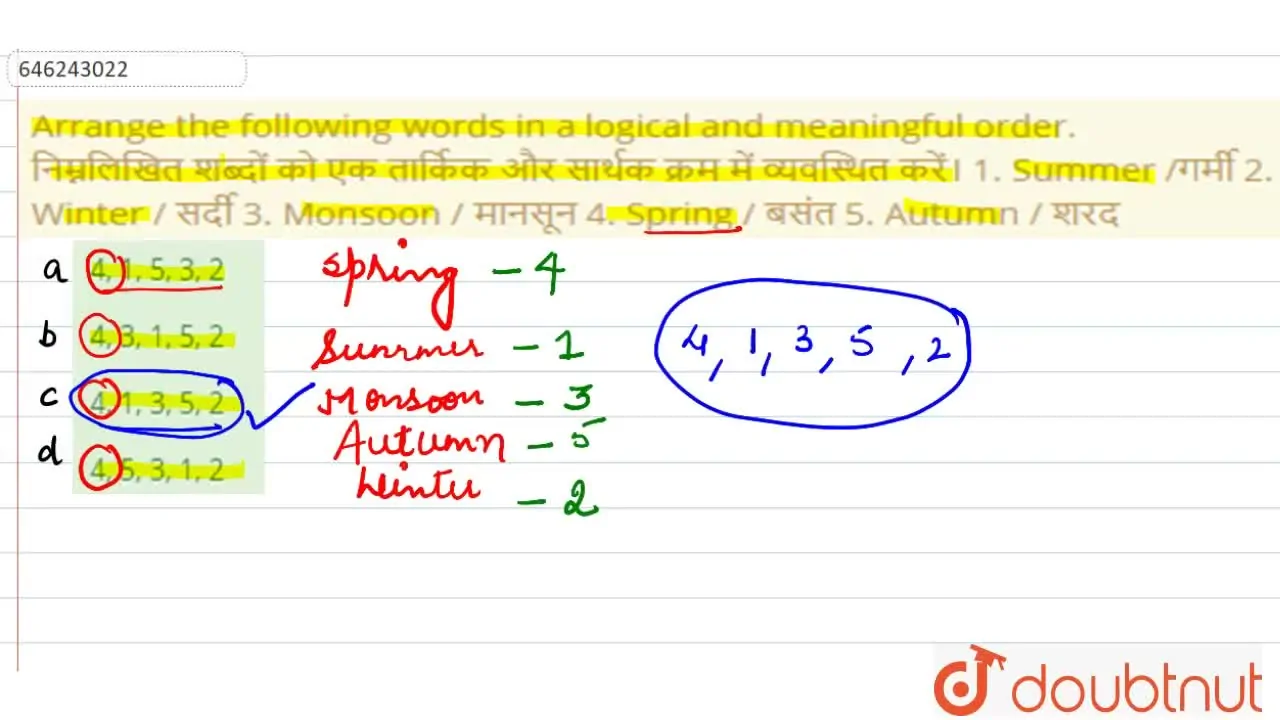 646243022
Arrange the following words in a logical and meaningful order.
निम्नलिखित शब्दों को एक तार्किक और सार्थक क्रम में व्यवस्थित करें। 1. Summer /गर्मी 2.
Winter / सर्दी 3. Monsoon / मानसून 4. Spring / बसंत 5. Autumn / शरद
a 4, 1, 5, 3, 2
b 4, 3, 1, 5, 2
c 4, 1, 3, 5, 2
d 4, 5, 3, 1, 2
Spring - 4
Summer - 1
Monsoon - 3
Autumn - 5
Winter - 2
4, 1, 3, 5, 2
doubtnut